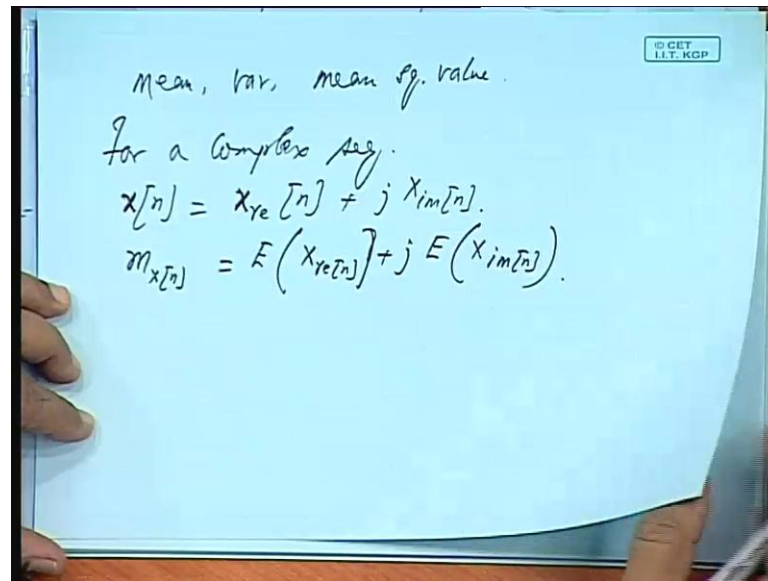 © CET
I.I.T. KGP
mean, var, mean sq. value.
For a complex seq.
x[n] = x_re [n] + j x_im[n].
m_x[n] = E(x_re[n]) + j E(x_im[n]).